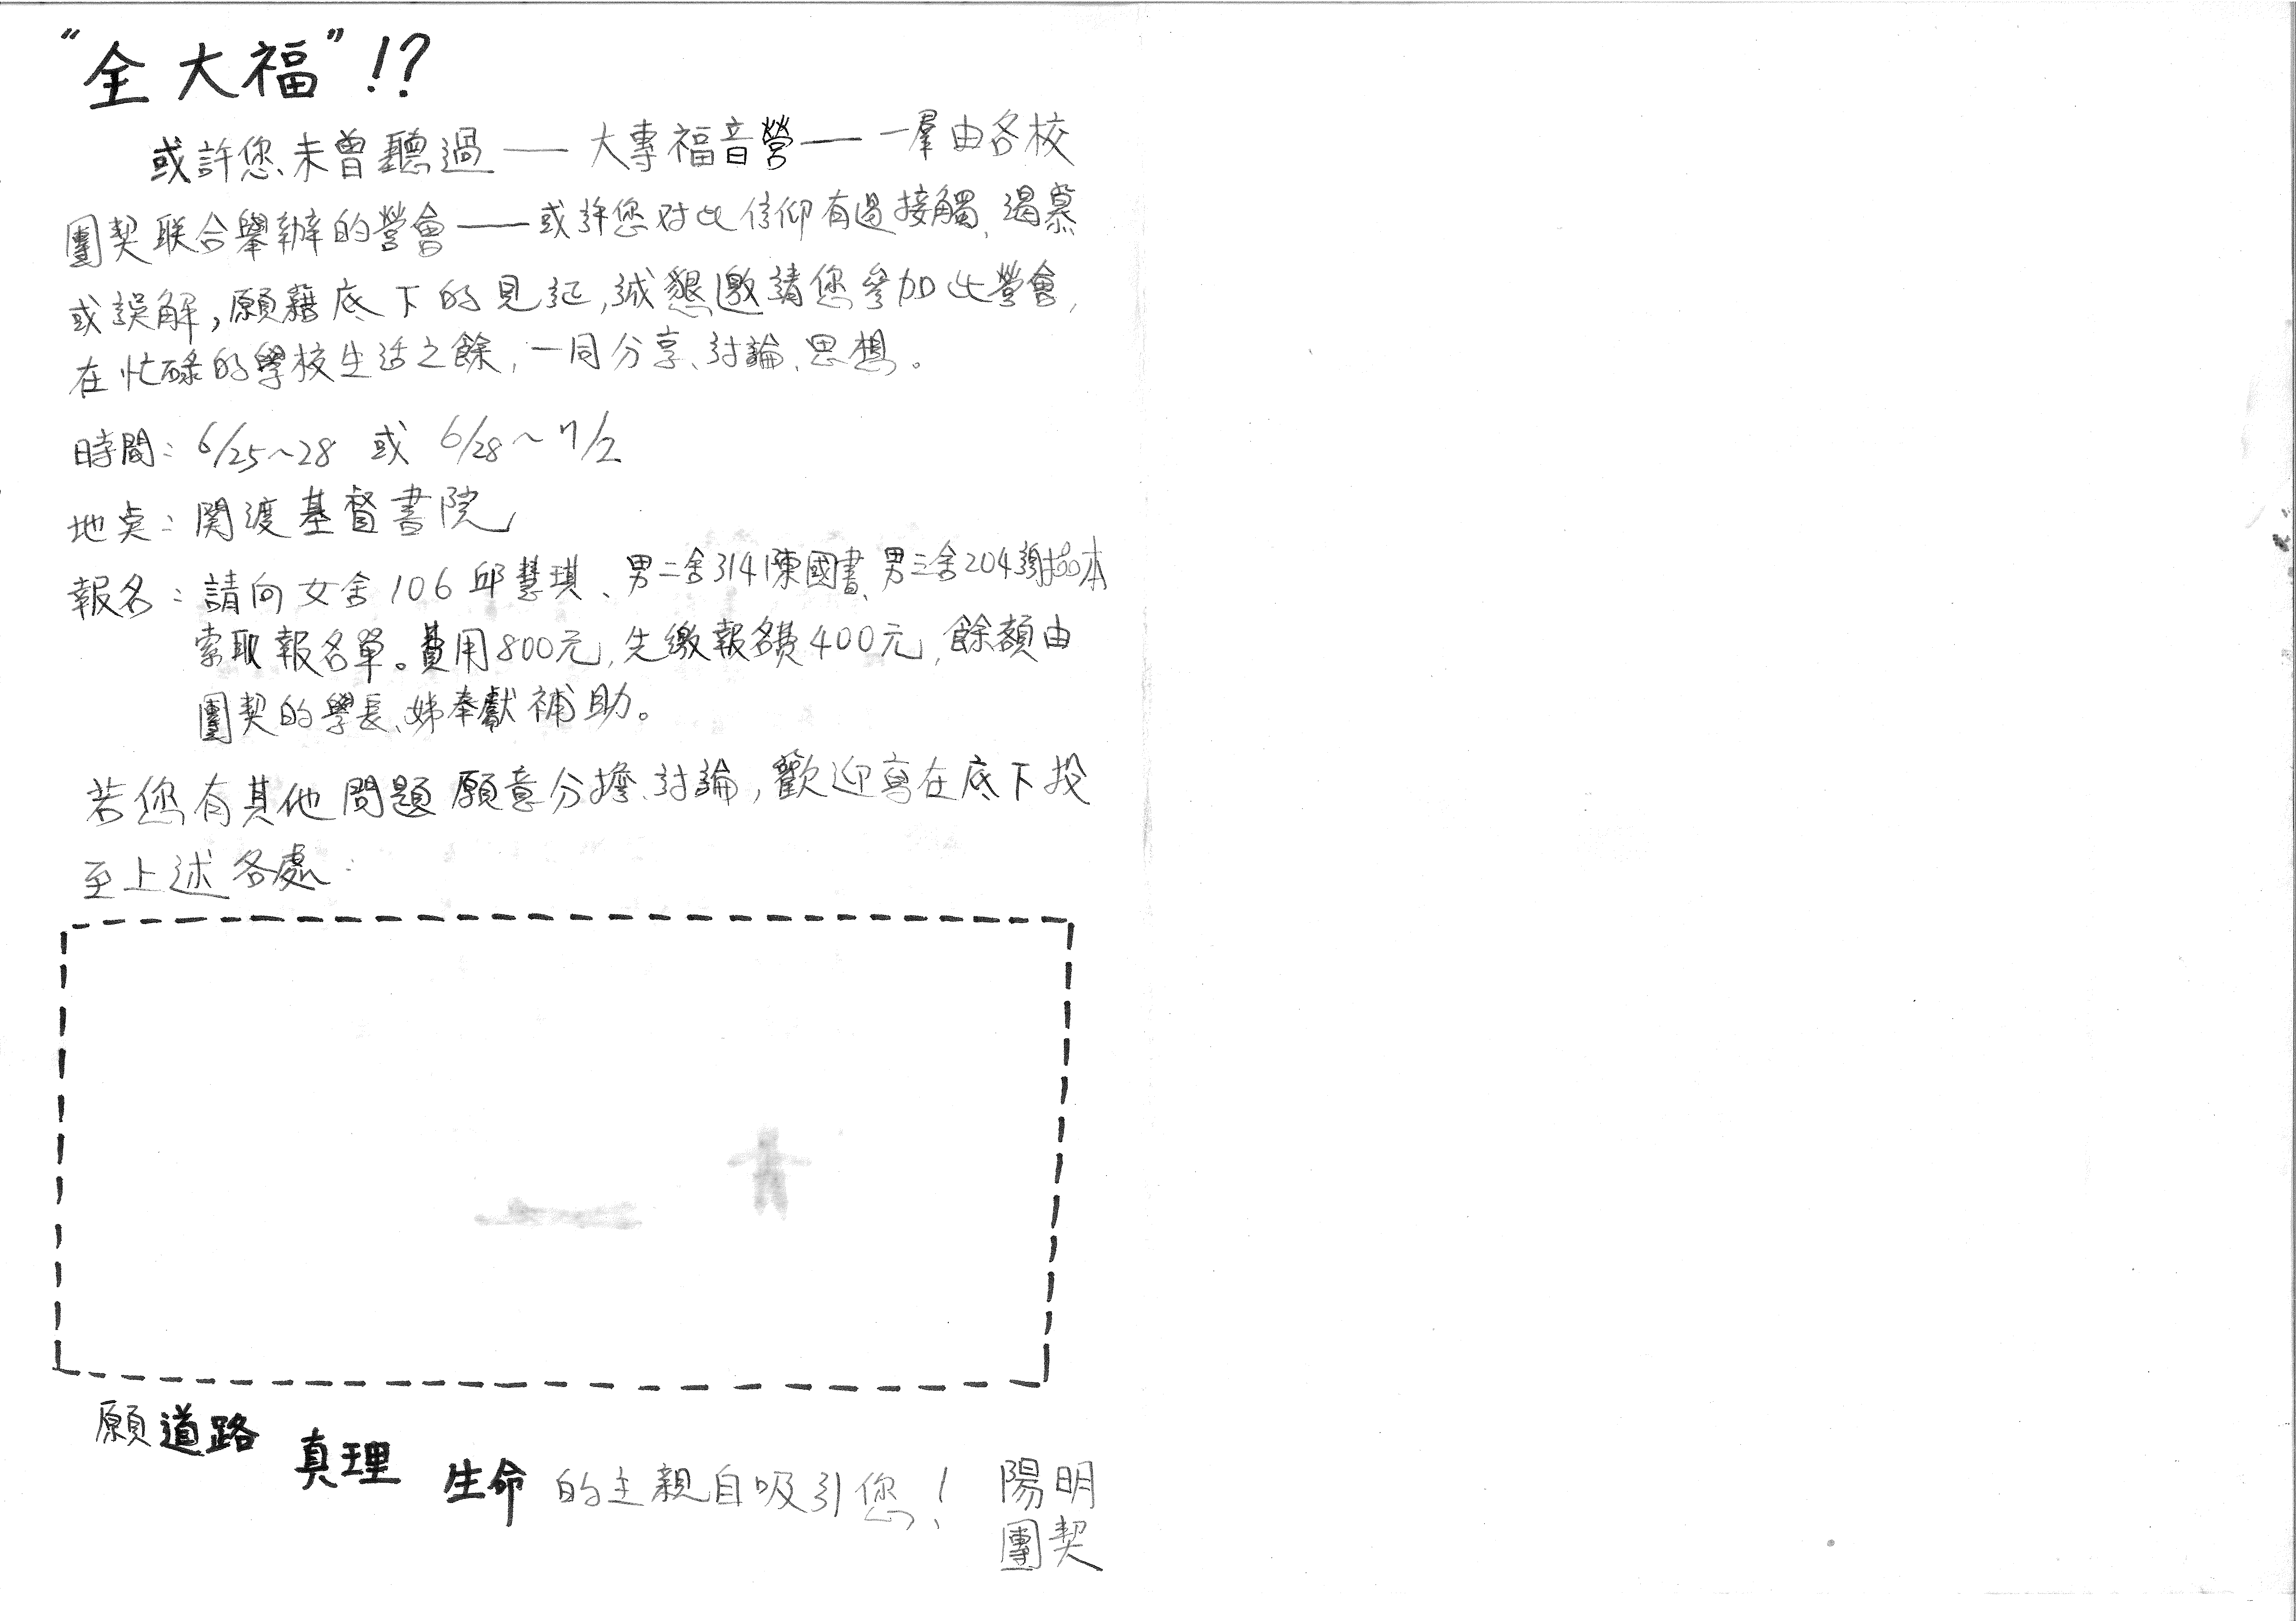 “全大福”!?
或許您未曾聽過——大專福音營——一羣由各校
團契联合舉辦的營會——或許您对此信仰有過接觸、渴慕
或誤解,願藉底下的見証,誠懇邀請您參加此營會,
在忙碌的學校生活之餘,一同分享、討論、思想。
時間:6/25~28 或 6/28~7/2
地点:関渡基督書院
報名:請向女舍106邱慧琪、男二舍314陳國書、男三舍204謝本
索取報名單。費用800元,先繳報名費400元,餘額由
團契的學長、姊奉獻補助。
若您有其他問題願意分擔、討論,歡迎寫在底下投
至上述各處:
願道路 真理 生命 的主親自吸引您!
陽明
團契